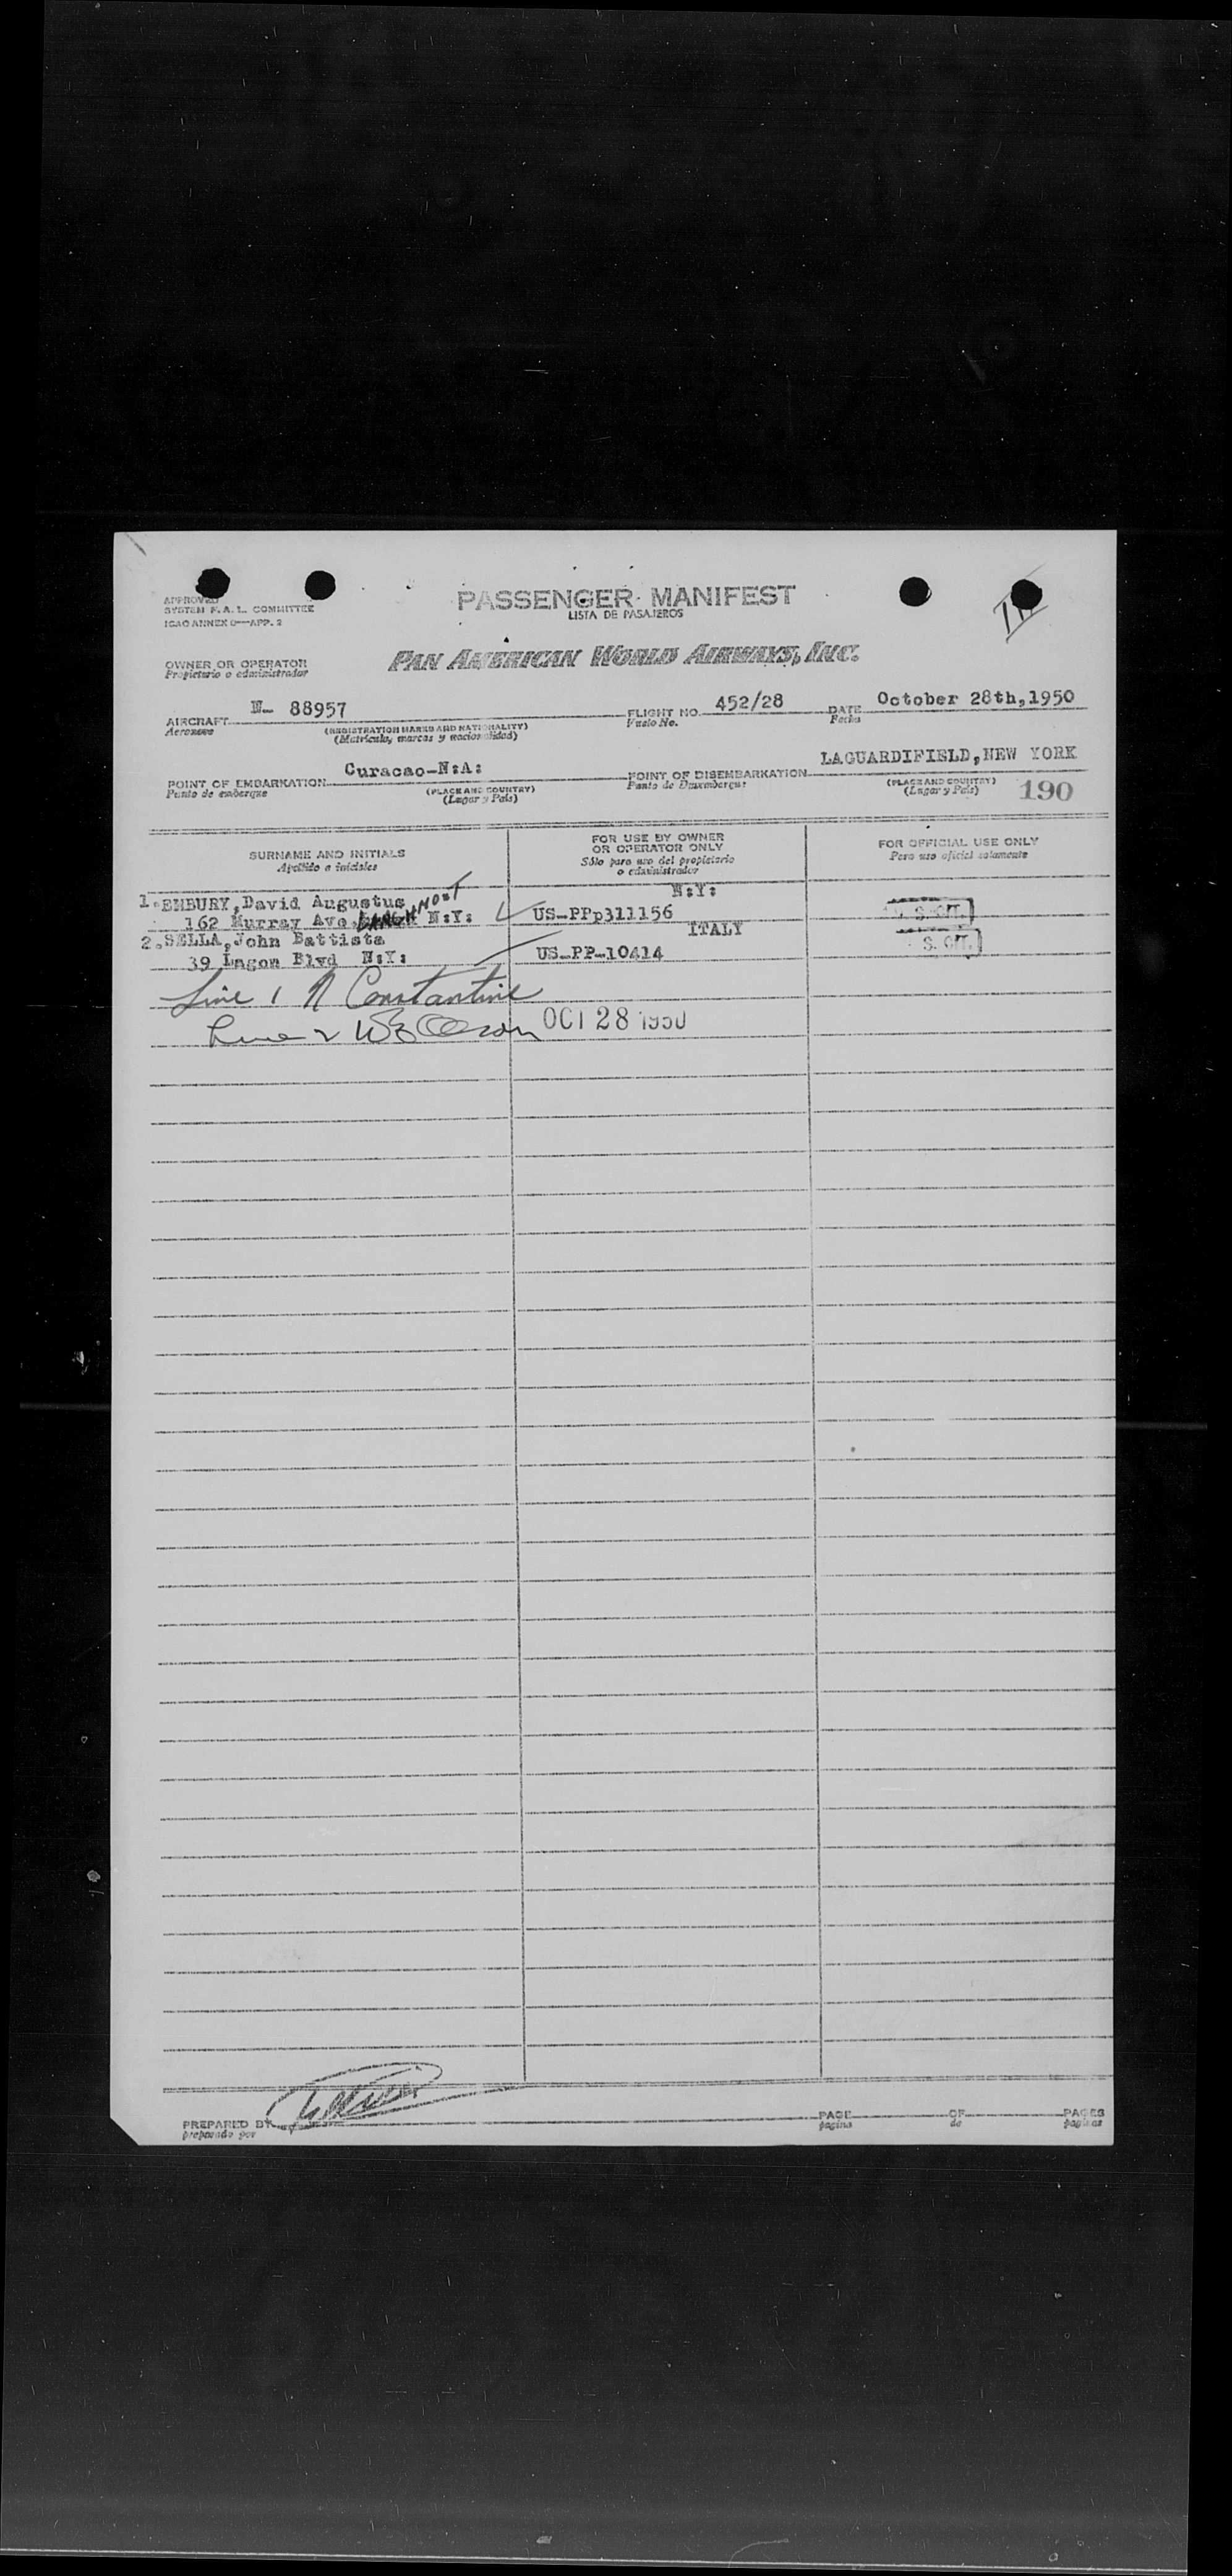 PASSENGER MANIFEST
LISTA DE PASAJEROS
APPROVED
SYSTEM F. A. L. COMMITTEE
ICAO ANNEX 9—APP. 2
PAN AMERICAN WORLD AIRWAYS, INC.
OWNER OR OPERATOR
Propietario o administrador
AIRCRAFT N- 88957 FLIGHT NO. 452/28 DATE October 28th,1950
Aeronave (REGISTRATION MARKS AND NATIONALITY) Vuelo No. Fecha
(Matrícula, marcas y nacionalidad)
POINT OF EMBARKATION Curacao-N:A: POINT OF DISEMBARKATION LAGUARDIFIELD,NEW YORK
Punto de embarque (PLACE AND COUNTRY) Punto de Desembarque (PLACE AND COUNTRY)
(Lugar y País) (Lugar y País) 190
SURNAME AND INITIALS FOR USE BY OWNER OR OPERATOR ONLY FOR OFFICIAL USE ONLY
Apellido e iniciales Sólo para uso del propietario o administrador Para uso oficial solamente
N:Y:
1.EMBURY,David Augustus
162 Murray Ave LARCHMONT N:Y: US-PPp311156
2.SELLA,John Battista ITALY
39 Lagom Blvd N:Y: US-PP-10414
S. CIT.
S. CIT.
Line 1 N Constantine
Line 2 OCT 28 1950
PREPARED BY PAGE OF PAGES
preparado por página de páginas